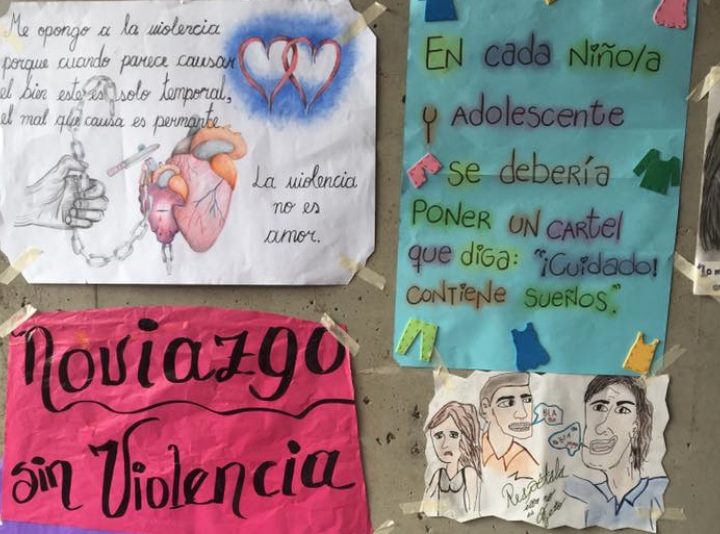 Me opongo a la violencia
porque cuando parece causar
el bien este es solo temporal,
el mal que causa es permante.
La violencia
no es
amor.
En cada niño/a
y Adolescente
se debería
poner un cartel
que diga: "¡Cuidado!
contiene sueños."
Noviazgo
sin Violencia
BLA
Respétala
no
"Lo